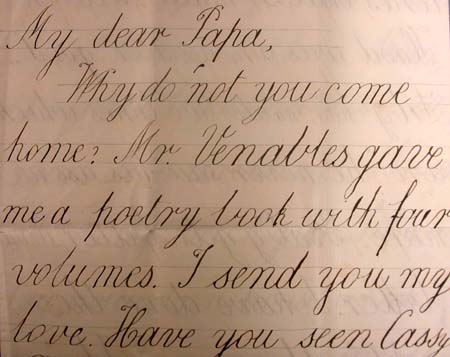 My dear Papa,
Why do not you come
home? Mr. Venables gave
me a poetry book with four
volumes. I send you my
love. Have you seen Cassy